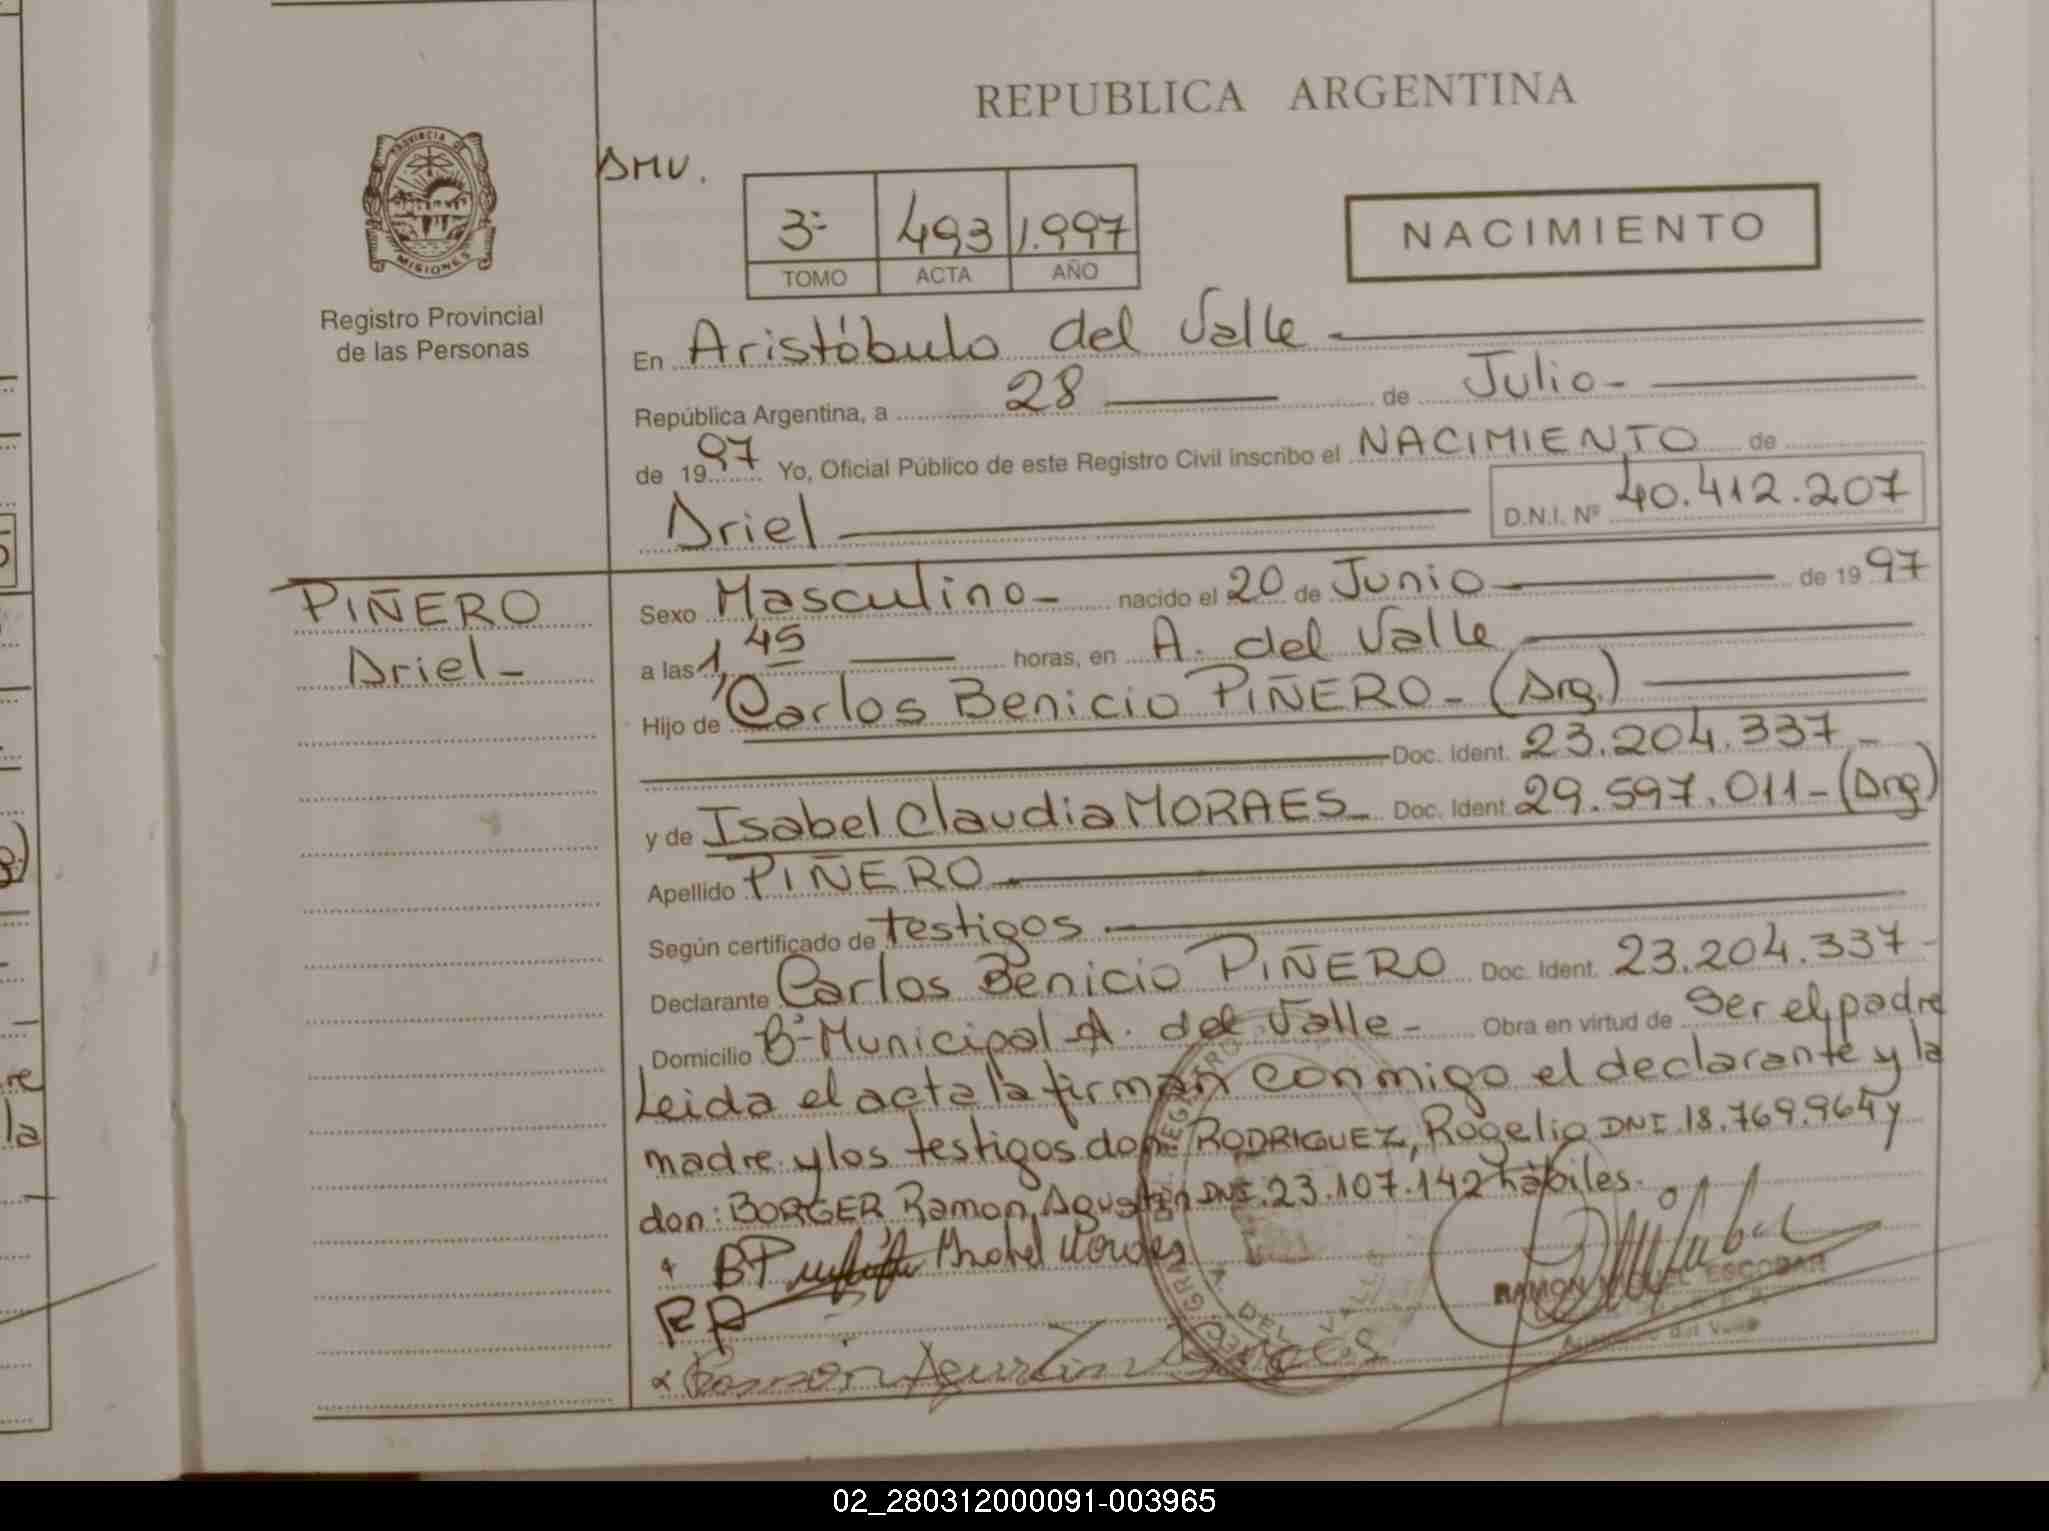 REPUBLICA ARGENTINA
PROVINCIA DE
MISIONES
Registro Provincial
de las Personas
AMV.
3º 493 1.997
TOMO ACTA AÑO
NACIMIENTO
En Aristóbulo del Valle
República Argentina, a 28 de Julio
de 1997 Yo, Oficial Público de este Registro Civil inscribo el NACIMIENTO de
Ariel D.N.I. Nº 40.412.207
PIÑERO
Ariel
Sexo Masculino nacido el 20 de Junio de 1997
a las 1,45 horas, en A. del Valle
Hijo de Carlos Benicio PIÑERO (Arg.)
Doc. Ident. 23.204.337
y de Isabel Claudia MORAES Doc. Ident. 29.597.011 (Arg)
Apellido PIÑERO
Según certificado de testigos
Declarante Carlos Benicio PIÑERO Doc. Ident. 23.204.337
Domicilio Bº Municipal A. del Valle Obra en virtud de Ser el padre
Leida el acta la firman conmigo el declarante y la
madre y los testigos don: RODRIGUEZ, Rogelio DNI 18.769.964 y
don: BORGER, Ramon, Agustin DNI. 23.107.142 hábiles.
RAMON MIGUEL ESCOBAR
del Valle
A. DEL VALLE
Ramón Agustin
re
la
02_280312000091-003965